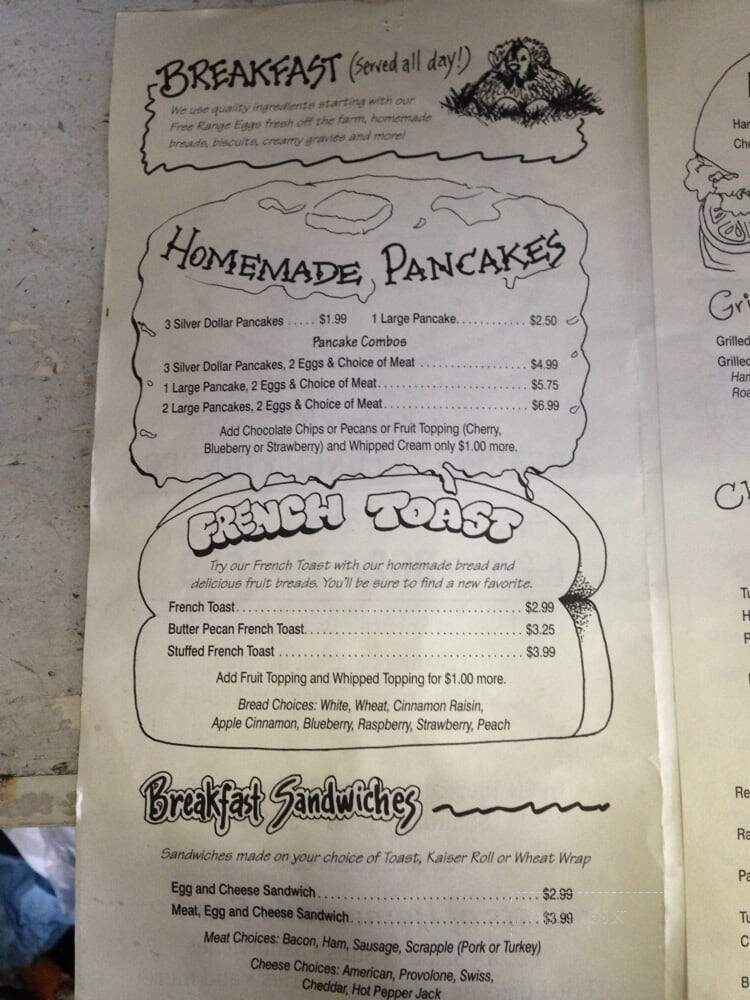 BREAKFAST (Served all day!)
We use quality ingredients starting with our
Free Range Eggs fresh off the farm, homemade
breads, biscuits, creamy gravies and more!
HOMEMADE PANCAKES
3 Silver Dollar Pancakes ..... $1.99 1 Large Pancake............ $2.50
Pancake Combos
3 Silver Dollar Pancakes, 2 Eggs & Choice of Meat .................. $4.99
1 Large Pancake, 2 Eggs & Choice of Meat......................... $5.75
2 Large Pancakes, 2 Eggs & Choice of Meat........................ $6.99
Add Chocolate Chips or Pecans or Fruit Topping (Cherry,
Blueberry or Strawberry) and Whipped Cream only $1.00 more.
FRENCH TOAST
Try our French Toast with our homemade bread and
delicious fruit breads. You'll be sure to find a new favorite.
French Toast.................................................. $2.99
Butter Pecan French Toast...................................... $3.25
Stuffed French Toast .......................................... $3.99
Add Fruit Topping and Whipped Topping for $1.00 more.
Bread Choices: White, Wheat, Cinnamon Raisin,
Apple Cinnamon, Blueberry, Raspberry, Strawberry, Peach
Breakfast Sandwiches
Sandwiches made on your choice of Toast, Kaiser Roll or Wheat Wrap
Egg and Cheese Sandwich.................................... $2.99
Meat, Egg and Cheese Sandwich............................... $3.99
Meat Choices: Bacon, Ham, Sausage, Scrapple (Pork or Turkey)
Cheese Choices: American, Provolone, Swiss,
Cheddar, Hot Pepper Jack
Grilled